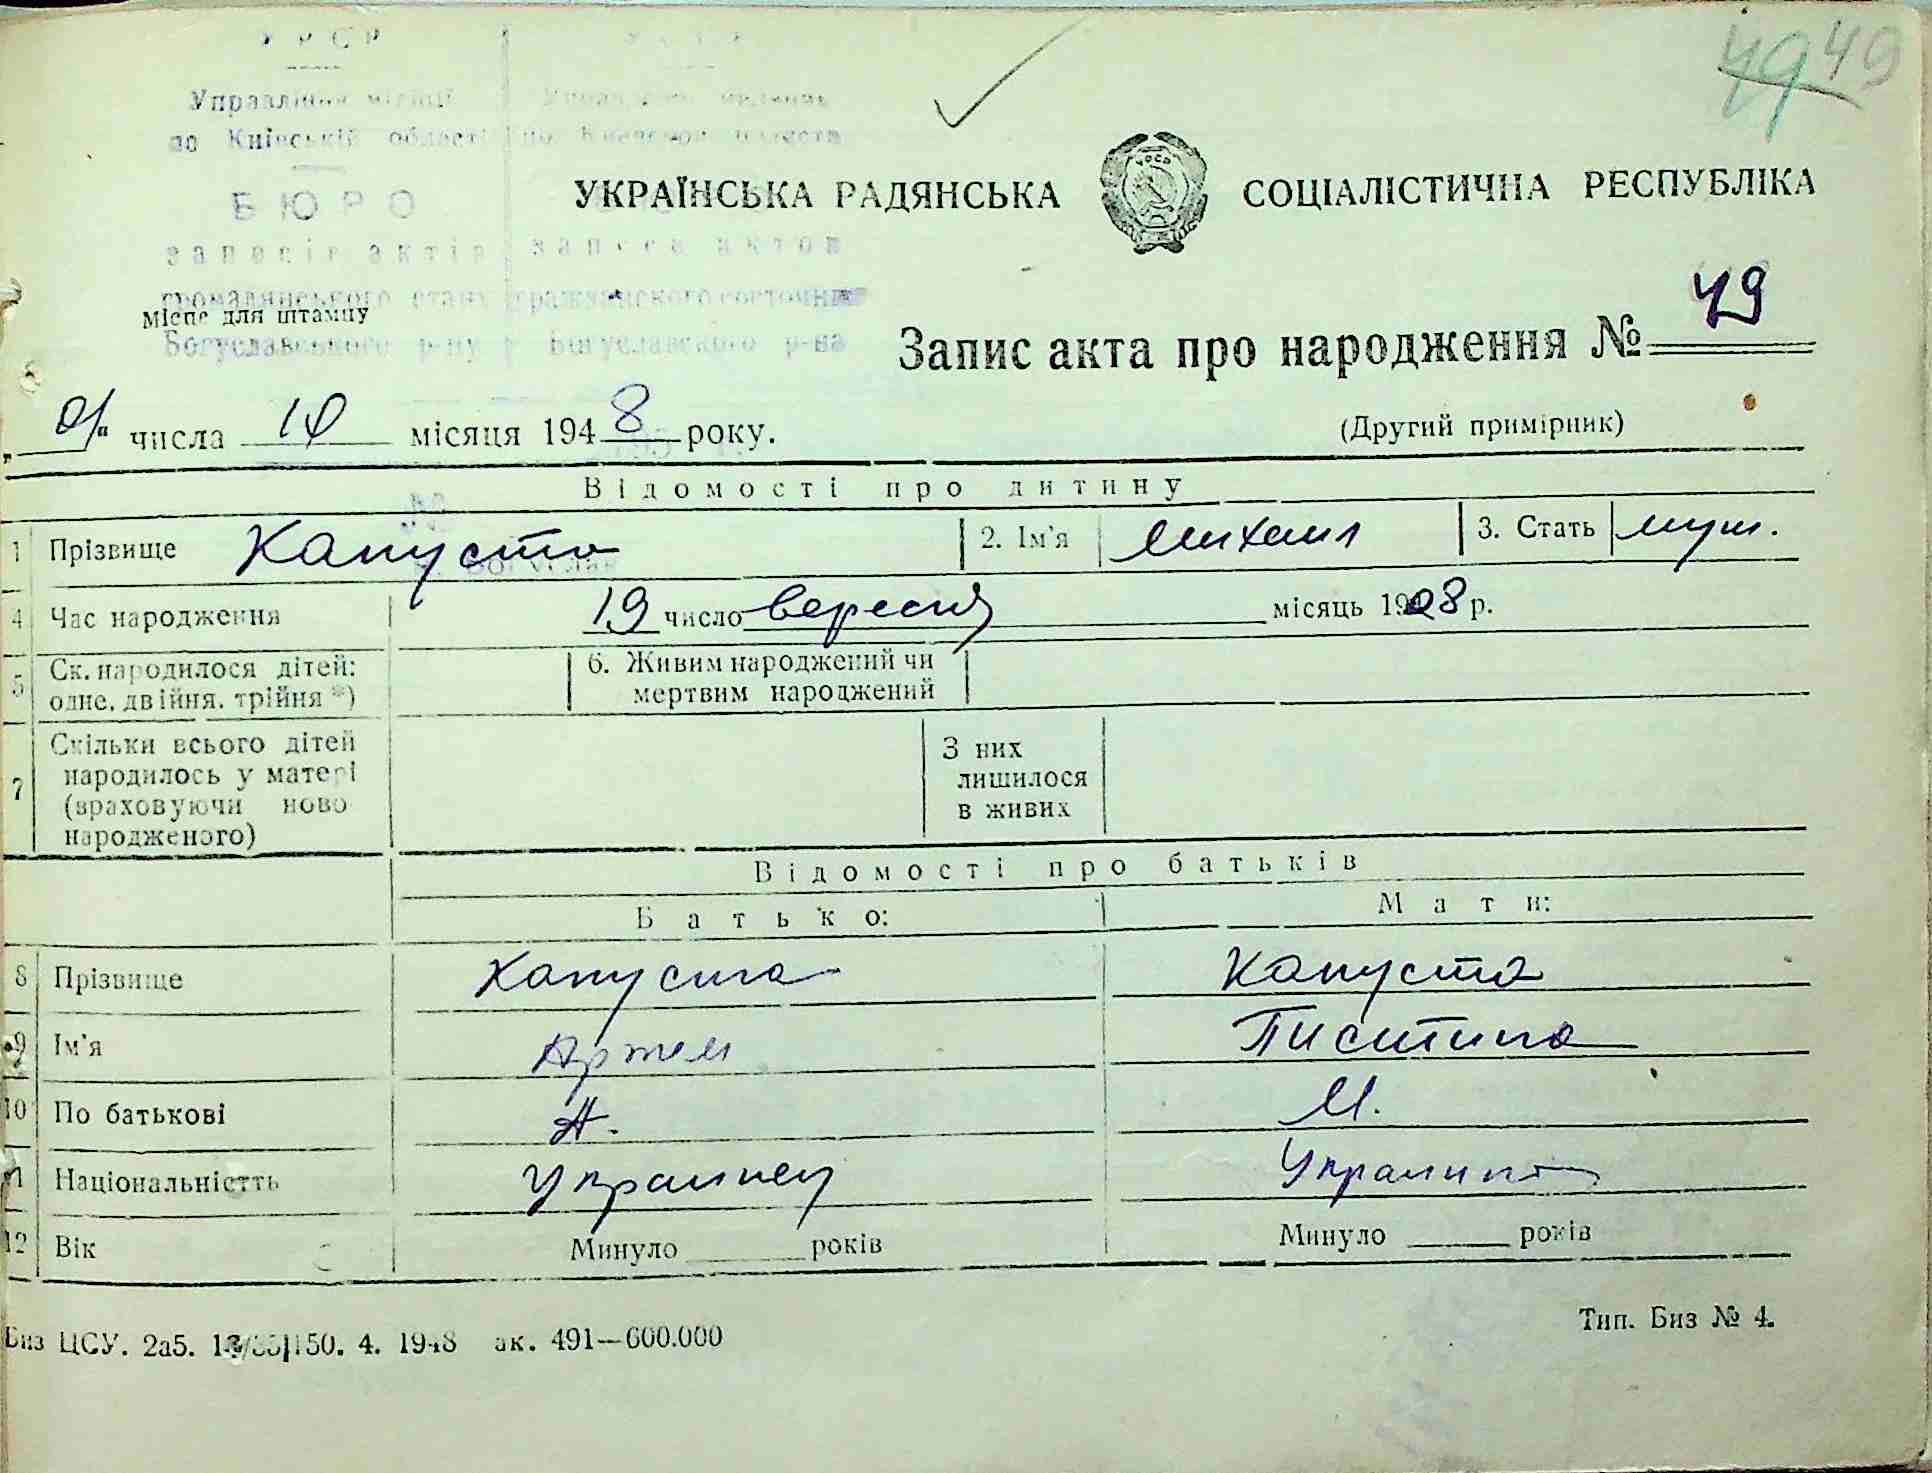 49 49
УРСР
Управління міліції
по Київській області
БЮРО
записів актів
громадянського стану
Богуславського р-ну
записи актов
гражданского состояния
Богуславского р-на
УКРАЇНСЬКА РАДЯНСЬКА СОЦІАЛІСТИЧНА РЕСПУБЛІКА
Місце для штампу
Запис акта про народження № 49
числа 10 місяця 1948 року.
(Другий примірник)
Відомості про дитину
1 Прізвище Капуста 2. Ім'я Михаил 3. Стать муж.
4 Час народження 19 число вересня місяць 1908 р.
5 Ск. народилося дітей: одне, двійня, трійня *) 6. Живим народжений чи мертвим народжений
7 Скільки всього дітей народилось у матері (враховуючи ново народженого) З них лишилося в живих
Відомості про батьків
Батько: Мати:
8 Прізвище Капуста Капуста
9 Ім'я Артем
10 По батькові А. М.
11 Національністть Украинец
12 Вік Минуло років Минуло років
ЦСУ. 2а5. 150. 4. 1948 ак. 491—600.000
Тип. Биз № 4.